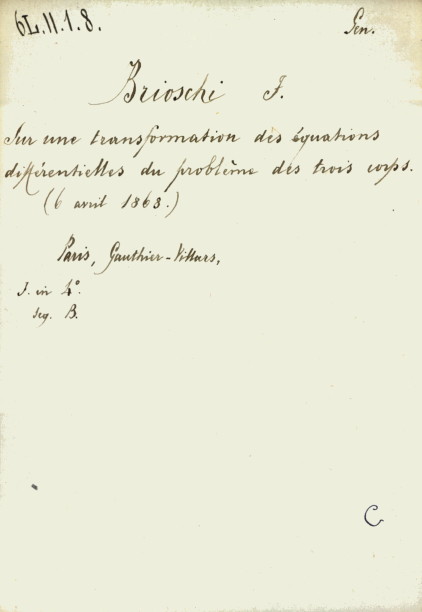 6L.II.1.8.
Gen.
Brioschi F.
Sur une transformation des équations
différentielles du problème des trois corps.
(6 avril 1868.)
Paris, Gauthier-Villars,
1. in 4º.
leg. B.
C